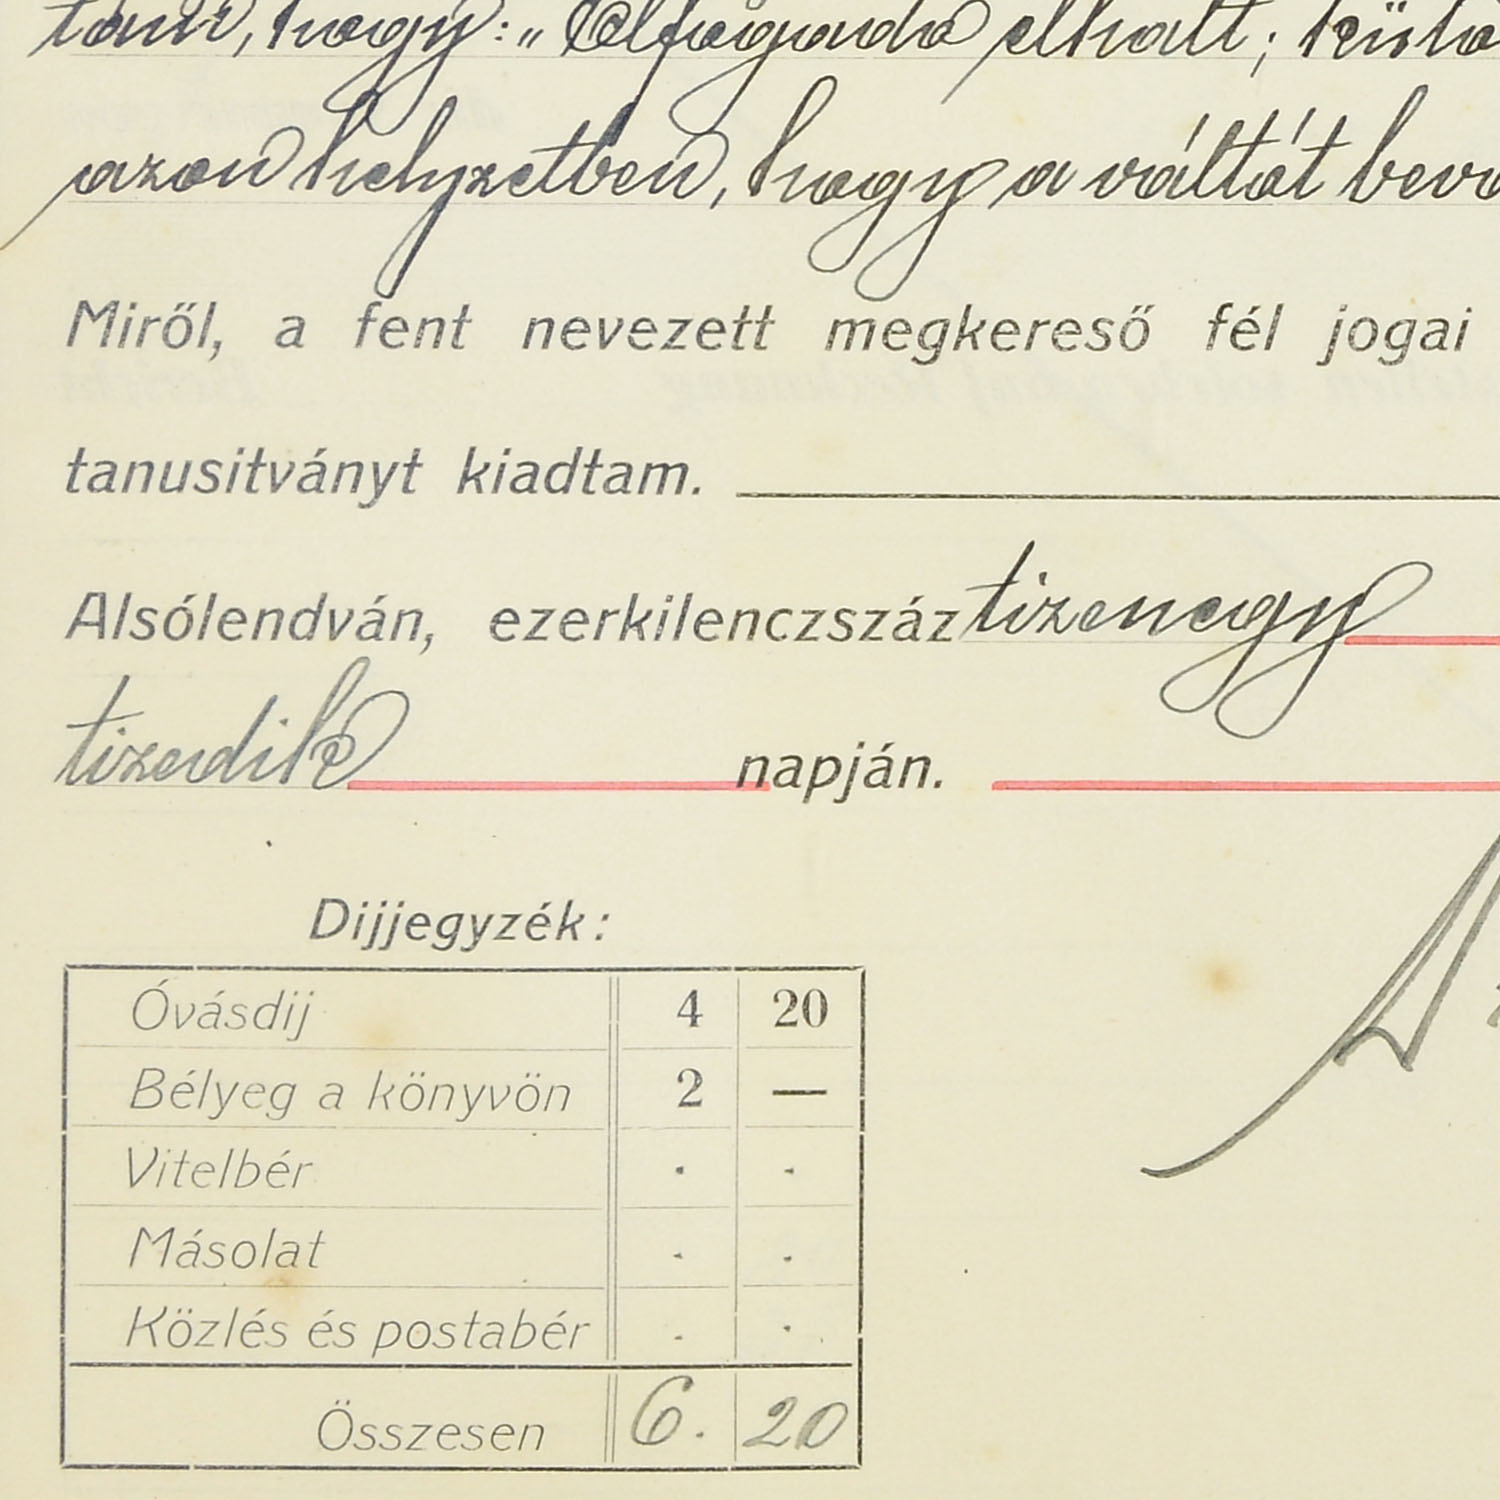 hogy: „Elfogadó elhalt;
azon helyzetben, hogy a váltót
Miről, a fent nevezett megkereső fél jogai
tanusitványt kiadtam.
Alsólendván, ezerkilenczszáz tizenegy
tizedik napján.
Dijjegyzék:
Óvásdij 4 20
Bélyeg a könyvön 2 —
Vitelbér . .
Másolat . .
Közlés és postabér . .
Összesen 6. 20